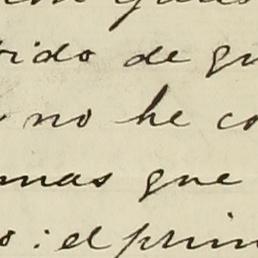 ido de gu
no he co
mas que
o : el prim